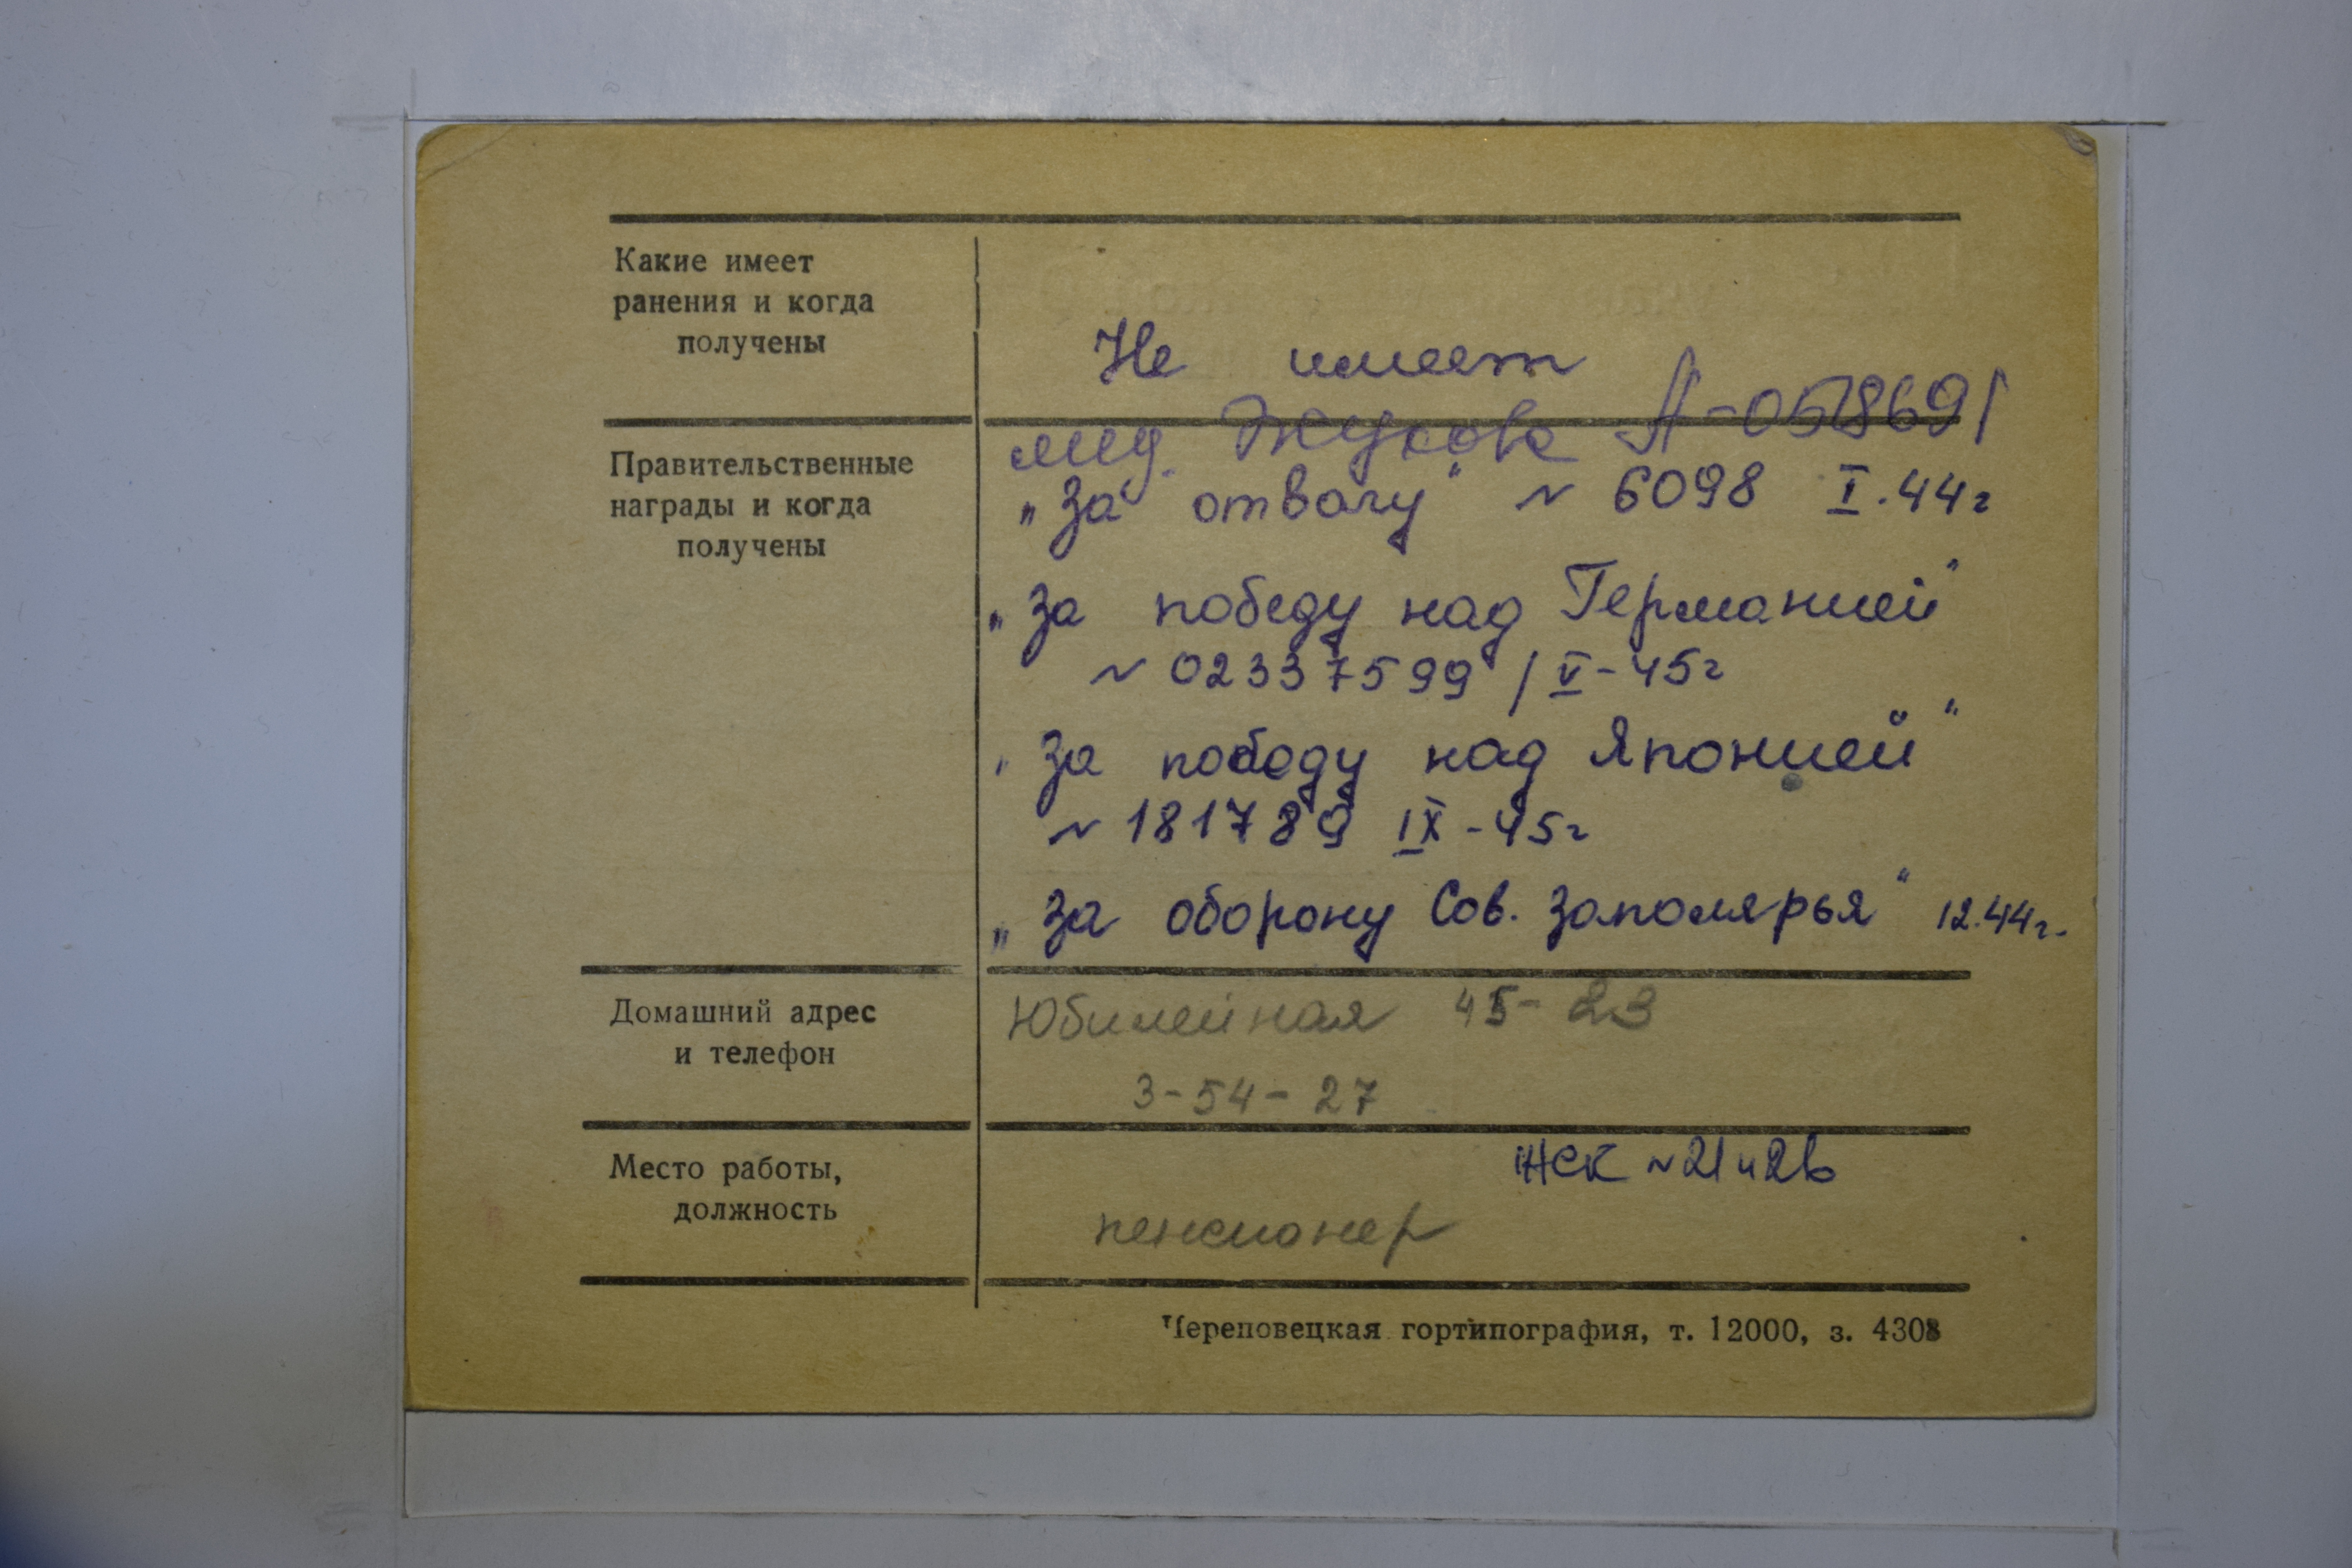 Какие имеет
ранения и когда
получены
Не имеет
Правительственные
награды и когда
получены
мед. Жукова А-0578691
„За отвагу" № 6098 I.44г
„За победу над Германией"
№ 02337599 / V-45г
„За победу над Японией"
№ 181789 IX-45г
„За оборону Сов. Заполярья" 12.44г.
Домашний адрес
и телефон
Юбилейная 45-23
3-54-27
Место работы,
должность
ЖСК №21
пенсионер
Череповецкая гортипография, т. 12000, з. 4308